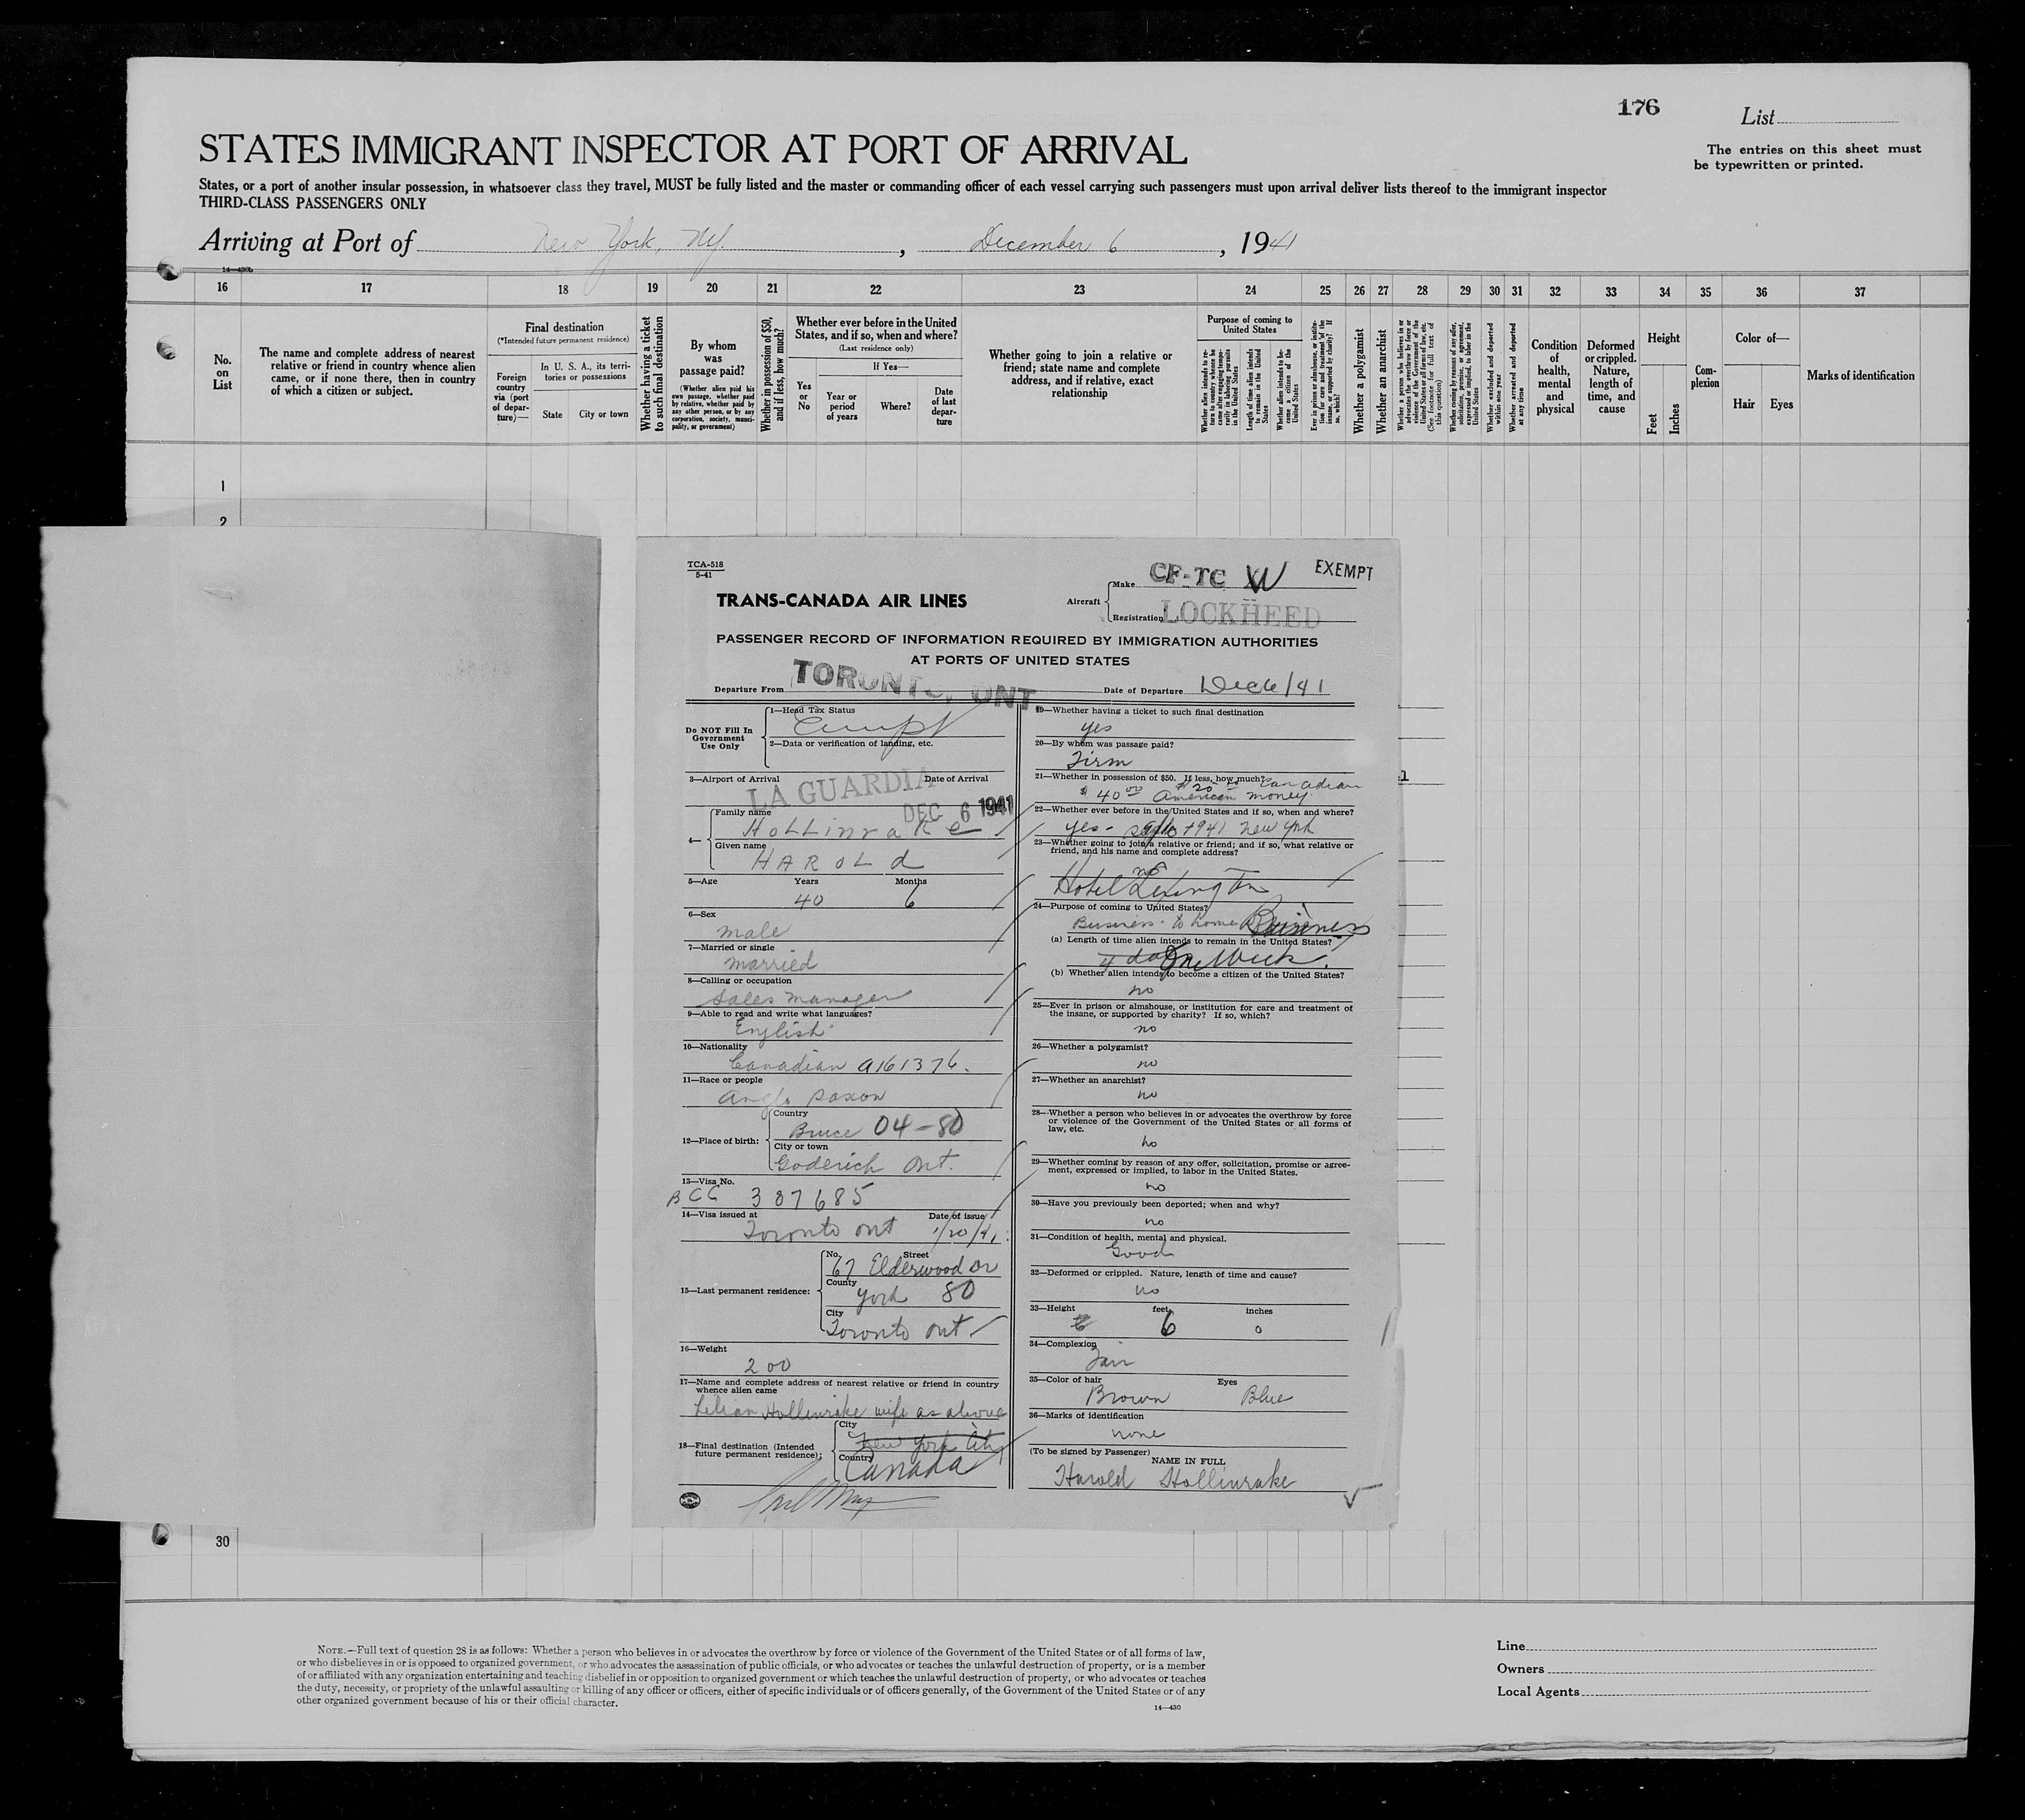 176
List
STATES IMMIGRANT INSPECTOR AT PORT OF ARRIVAL
The entries on this sheet must
be typewritten or printed.
States, or a port of another insular possession, in whatsoever class they travel, MUST be fully listed and the master or commanding officer of each vessel carrying such passengers must upon arrival deliver lists thereof to the immigrant inspector
THIRD-CLASS PASSENGERS ONLY
Arriving at Port of New York, NY. , December 6 , 1941
14—430b
16 17 18 19 20 21 22 23 24 25 26 27 28 29 30 31 32 33 34 35 36 37
No. on List
The name and complete address of nearest relative or friend in country whence alien came, or if none there, then in country of which a citizen or subject.
Final destination
(*Intended future permanent residence)
Foreign country via (port of departure)—
In U. S. A., its territories or possessions
State
City or town
Whether having a ticket to such final destination
By whom was passage paid?
(Whether alien paid his own passage, whether paid by relative, whether paid by any other person, or by any corporation, society, municipality, or government)
Whether in possession of $50, and if less, how much?
Whether ever before in the United States, and if so, when and where?
(Last residence only)
Yes or No
If Yes—
Year or period of years
Where?
Date of last departure
Whether going to join a relative or friend; state name and complete address, and if relative, exact relationship
Purpose of coming to United States
Whether alien intends to return to country whence he came after engaging temporarily in laboring pursuits in the United States
Length of time alien intends to remain in the United States
Whether alien intends to become a citizen of the United States
Ever in prison or almshouse, or institution for care and treatment of the insane, or supported by charity? If so, which?
Whether a polygamist
Whether an anarchist
Whether a person who believes in or advocates the overthrow by force or violence of the Government of the United States or all forms of law, etc. (See footnote for full text of this question)
Whether coming by reason of any offer, solicitation, promise, or agreement, expressed or implied, to labor in the United States
Whether excluded and deported within one year
Whether arrested and deported at any time
Condition of health, mental and physical
Deformed or crippled. Nature, length of time, and cause
Height
Feet
Inches
Complexion
Color of—
Hair
Eyes
Marks of identification
1
2
TCA-518
5-41
TRANS-CANADA AIR LINES
Aircraft
Make CF-TC W
EXEMPT
Registration LOCKHEED
PASSENGER RECORD OF INFORMATION REQUIRED BY IMMIGRATION AUTHORITIES
AT PORTS OF UNITED STATES
Departure From TORONTO, ONT.
Date of Departure Dec 6/41
Do NOT Fill In
Government
Use Only
1—Head Tax Status
Exempt
2—Data or verification of landing, etc.
3—Airport of Arrival
LA GUARDIA
Date of Arrival
DEC 6 1941
4—
Family name
Hollinrake
Given name
HAROLd
5—Age Years Months
40 6
6—Sex
male
7—Married or single
married
8—Calling or occupation
Sales manager
9—Able to read and write what languages?
English
10—Nationality
Canadian A161376.
11—Race or people
Anglo Saxon
12—Place of birth:
Country
Bruce 04-80
City or town
Goderich Ont.
13—Visa No.
BCC 387685
14—Visa issued at Date of issue
Toronto Ont 1/20/41
15—Last permanent residence:
No. Street
67 Elderwood Dr
County
York 80
City
Toronto Ont
16—Weight
200
17—Name and complete address of nearest relative or friend in country
whence alien came
Lilian Hollinrake wife as above
18—Final destination (Intended
future permanent residence);
City
New York City
Country
Canada
19—Whether having a ticket to such final destination
yes
20—By whom was passage paid?
Firm
21—Whether in possession of $50. If less, how much?
$20.00 Canadian
$40.00 American money.
22—Whether ever before in the United States and if so, when and where?
yes - 1941 New York
23—Whether going to join a relative or friend; and if so, what relative or
friend, and his name and complete address?
no
Hotel Lexington
24—Purpose of coming to United States?
Business - to home Business
(a) Length of time alien intends to remain in the United States?
4 days One Week.
(b) Whether alien intends to become a citizen of the United States?
no
25—Ever in prison or almshouse, or institution for care and treatment of
the insane, or supported by charity? If so, which?
no
26—Whether a polygamist?
no
27—Whether an anarchist?
no
28—Whether a person who believes in or advocates the overthrow by force
or violence of the Government of the United States or all forms of
law, etc.
no
29—Whether coming by reason of any offer, solicitation, promise or agree-
ment, expressed or implied, to labor in the United States.
no
30—Have you previously been deported; when and why?
no
31—Condition of health, mental and physical.
Good
32—Deformed or crippled. Nature, length of time and cause?
no
33—Height feet inches
6 6 0
34—Complexion
Fair
35—Color of hair Eyes
Brown Blue
36—Marks of identification
none
(To be signed by Passenger)
NAME IN FULL
Harold Hollinrake
30
NOTE.—Full text of question 28 is as follows: Whether a person who believes in or advocates the overthrow by force or violence of the Government of the United States or of all forms of law,
or who disbelieves in or is opposed to organized government, or who advocates the assassination of public officials, or who advocates or teaches the unlawful destruction of property, or is a member
of or affiliated with any organization entertaining and teaching disbelief in or opposition to organized government or which teaches the unlawful destruction of property, or who advocates or teaches
the duty, necessity, or propriety of the unlawful assaulting or killing of any officer or officers, either of specific individuals or of officers generally, of the Government of the United States or of any
other organized government because of his or their official character.
14—430
Line
Owners
Local Agents